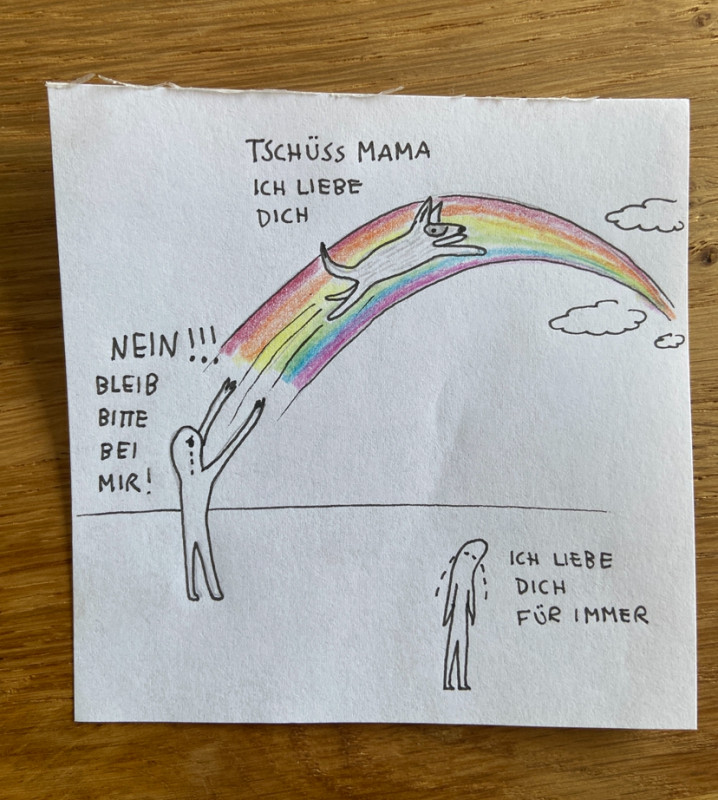 TSCHÜSS MAMA
ICH LIEBE
DICH
NEIN!!!
BLEIB
BITTE
BEI
MIR!
ICH LIEBE
DICH
FÜR IMMER